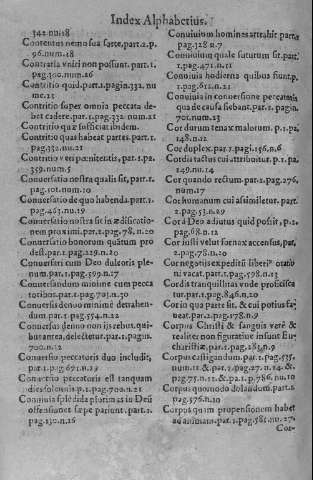 Index Alphabeticus.
342 nu.18
Contentus nemo sua sorte, part.2.p.
96.num.18
Contraria vniri non possunt. part.1.
pag.300.num.26
Contritio quid. part.1.pagin.332. nu
me.21
Contritio super omnia peccata de-
bet cadere. par.1.pag.332. num.21
Contritio quæ sufficiat ibidem.
Contritio quas habeat partes. part.1.
pag.332.nu.21
Contritio vera pœnitentis, par.1.pa.
359.num.5
Conuersatio nostra qualis sit, part.1.
pag.101.num.10
Conuersatio de quo habenda. part.1.
pag.463.nu.19
Conuersatio nostra sit in ædificatio-
nem proximi. par.1.pag.78.n.20
Conuersatio bonorum quàtum pro
dest. par.1.pag.229.n.20
Conuersari cum Deo dulcoris ple-
num. par.1.pag.599.n.17
Conuersandum minime cum pecca
toribus. par.1.pag.701.n.30
Conuersus denuo minime detrahen-
dum. par.1.pag.554.n.22
Conuersus denuo non ijs rebus, qui-
bus antea, delectetur. par.1.pagin.
700.n.12
Conuersio peccatoris duo includit,
par.1.pag.671.n.19
Conuersio peccatoris est tanquam
dies solennis. p.1.pag.700.n.21
Conuiuia splẽdida plurimas in Deũ
offensiones sæpe pariunt. part.1.
pag.130.n.26
Conuiuium homines attrahit. part.1
pag.328 n.7
Conuiuium quale futurum sit. part.
1.pag.471.n.11
Conuiuia hodierna quibus fiunt. p.
1.pag.621.n.21
Conuiuia in conuersione peccatoris
qua de causa fiebant. par.1. pagin.
701.num.23
Cor durum tenax malorum. p.1.pa.
148.n.12
Cor duplex. par.1.pagi.156.n.6
Cordis tactus cui attribuitur. p.1.pa.
149.nu.14
Cor quando rectum. par.1.pag.276,
num.17
Cor humanum cui assimiletur. part.
2.pag.53.n.29
Cor à Deo aditum quid possit, p.1.
pag.68.n.12
Cor iusti velut fornax accensus, pat.
2.pag.78.n.20
Cor negotijs expeditũ liberi9 oratio
ni vacat. part.1.pag.598.n.13
Cordis tranquillitas vnde proficisca
tur. par.1.pag.846.n.10
Cor in qua parte sit, & cui potius fa-
ueat. par.2.pag.178.n.9
Corpus Christi & sanguis verè &
realiter non figuratiue insunt Eu-
charistiæ. par.1.pag.281.n.9
Corpus castigandum. par.1.pag.535.
num.11. & par.1.pag.27.n.14. &
pag.75.n.11. & pa.1.p.786.nu.10
Corpus quomodo dolandum. part.1
pag.576.n.10
Corpus quam propensionem habet
ad animam. par.1.pag.581.nu.27.
Cor-